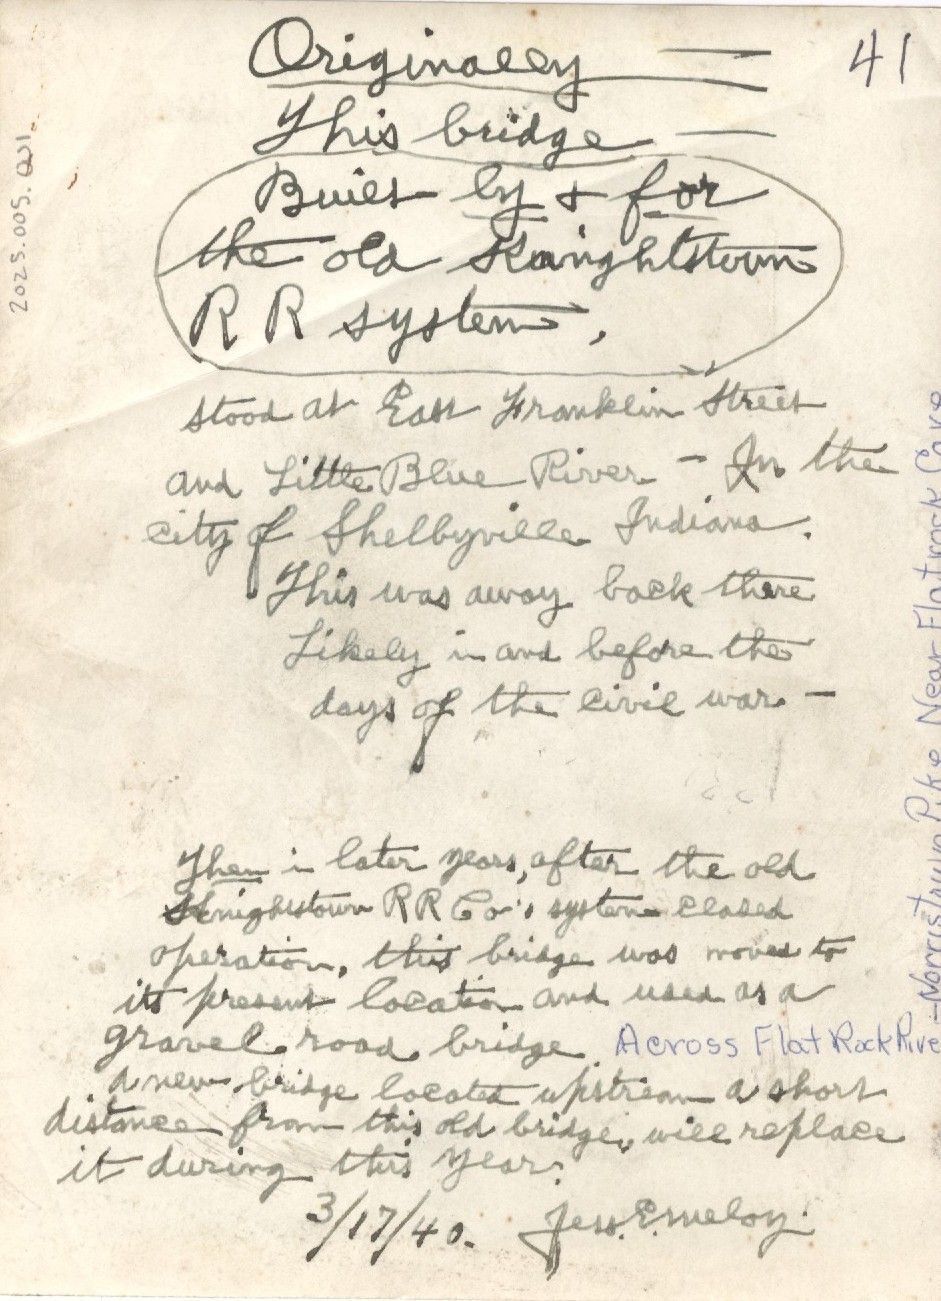 41
Originally —
This bridge —
Built by & for
the old Knightstown
RR system,
stood at East Franklin Street
and Little Blue River - In the
city of Shelbyville Indiana.
This was away back there
Likely in and before the
days of the civil war. -
Then in later years, after the old
Knightstown RR Co's system closed
operation, this bridge was moved to
its present location and used as a
gravel road bridge Across Flat Rock Rive
a new bridge located upstream a short
distance from this old bridge, will replace
it during this year.
3/17/40. Jess. E. meloy.
Norristown Pike Near Flatrock Cave
2025.005.001